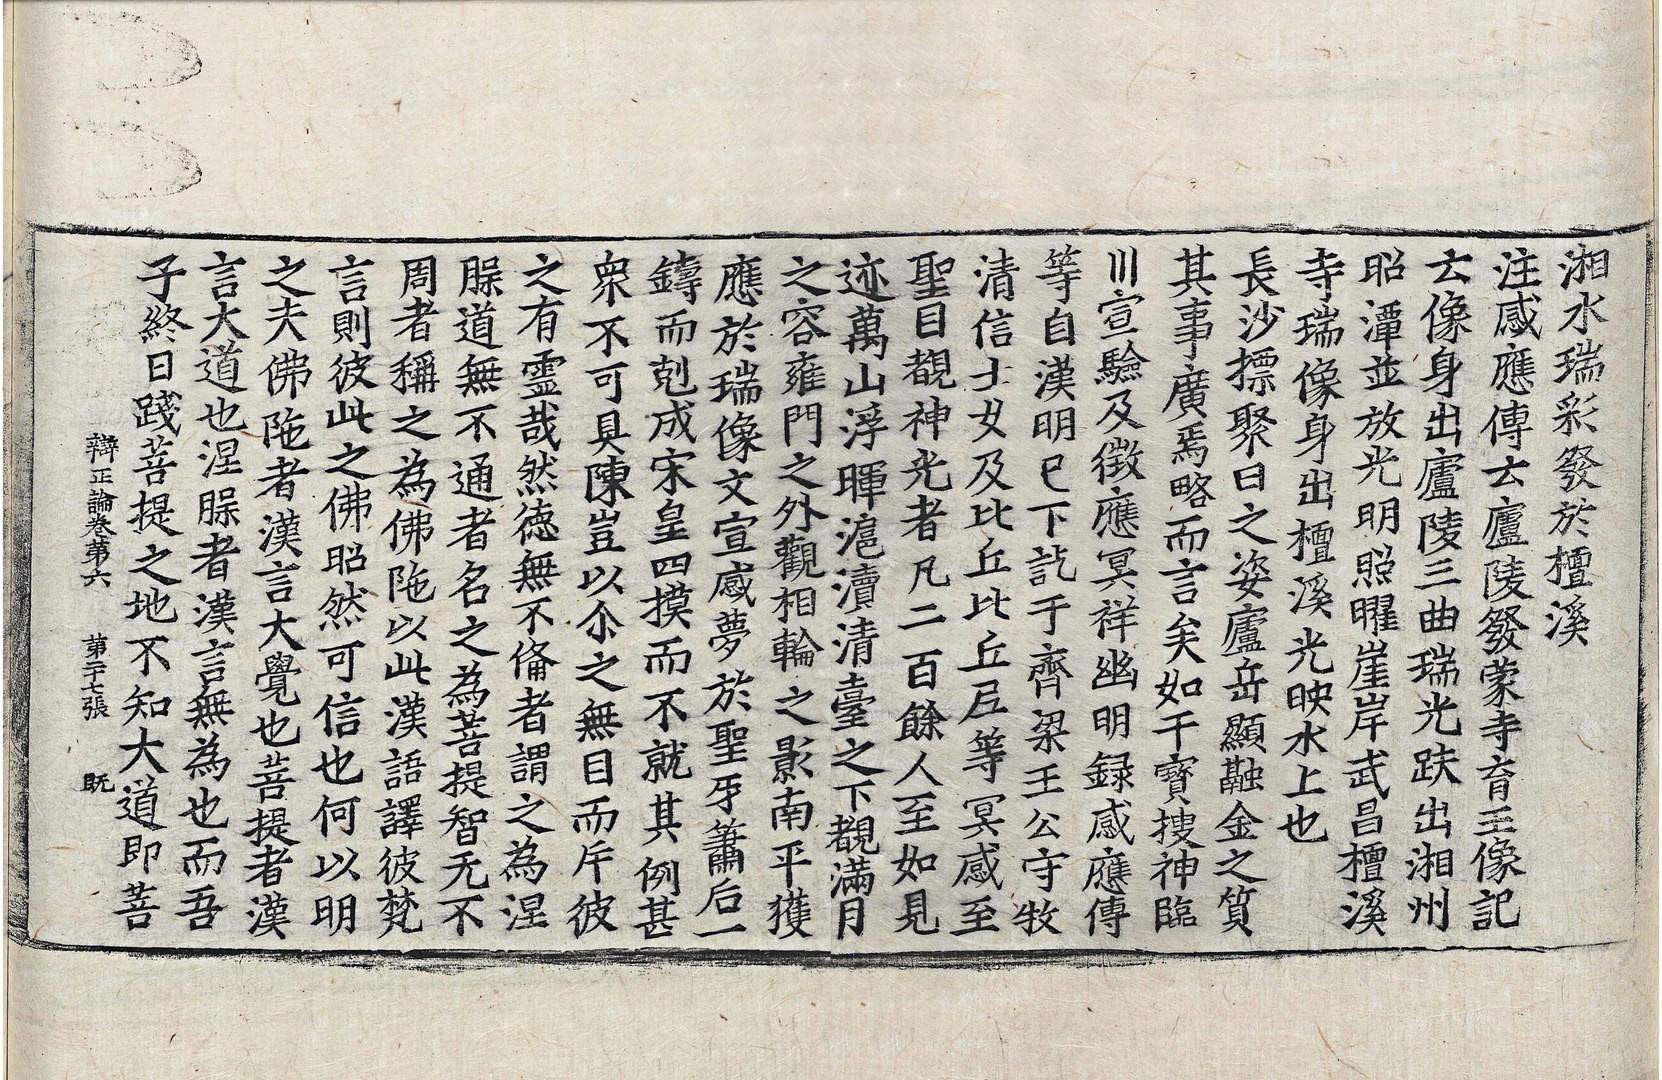 湘水瑞彩發於檀溪
注感應傳云廬陵發蒙寺育王像記
云像身出廬陵三曲瑞光趺出湘州
昭潭並放光明照曜崖岸武昌檀溪
寺瑞像身出檀溪光映水上也
長沙摽聚日之姿廬岳顯融金之質
其事廣焉略而言矣如干寶搜神臨
川宣驗及徵應冥祥幽明録感應傳
等自漢明已下訖于齊梁王公守牧
清信士女及比丘比丘尼等冥感至
聖目覩神光者凡二百餘人至如見
迹萬山浮暉滬瀆清臺之下覩滿月
之容雍門之外觀相輪之影南平獲
應於瑞像文宣感夢於聖牙蕭后一
鑄而剋成宋皇四摸而不就其例甚
衆不可具陳豈以尒之無目而斥彼
之有靈哉然德無不俻者謂之為涅
脵道無不通者名之為菩提智无不
周者稱之為佛陁以此漢語譯彼梵
言則彼此之佛昭然可信也何以明
之夫佛陁者漢言大覺也菩提者漢
言大道也涅脵者漢言無為也而吾
子終日踐菩提之地不知大道即菩
辯正論卷第六 第二十七張 既